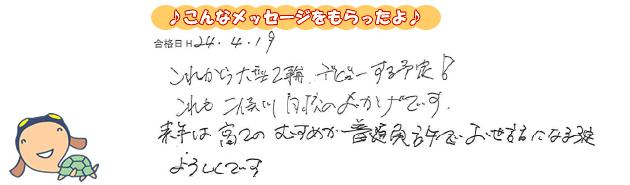 ♪こんなメッセージをもらったよ♪
合格日 H24.4.19
これから大型2輪、デビューする予定!
これも二俣川自校のおかげです。
来年は高2のむすめが普通免許でおせわになる予定
よろしくです